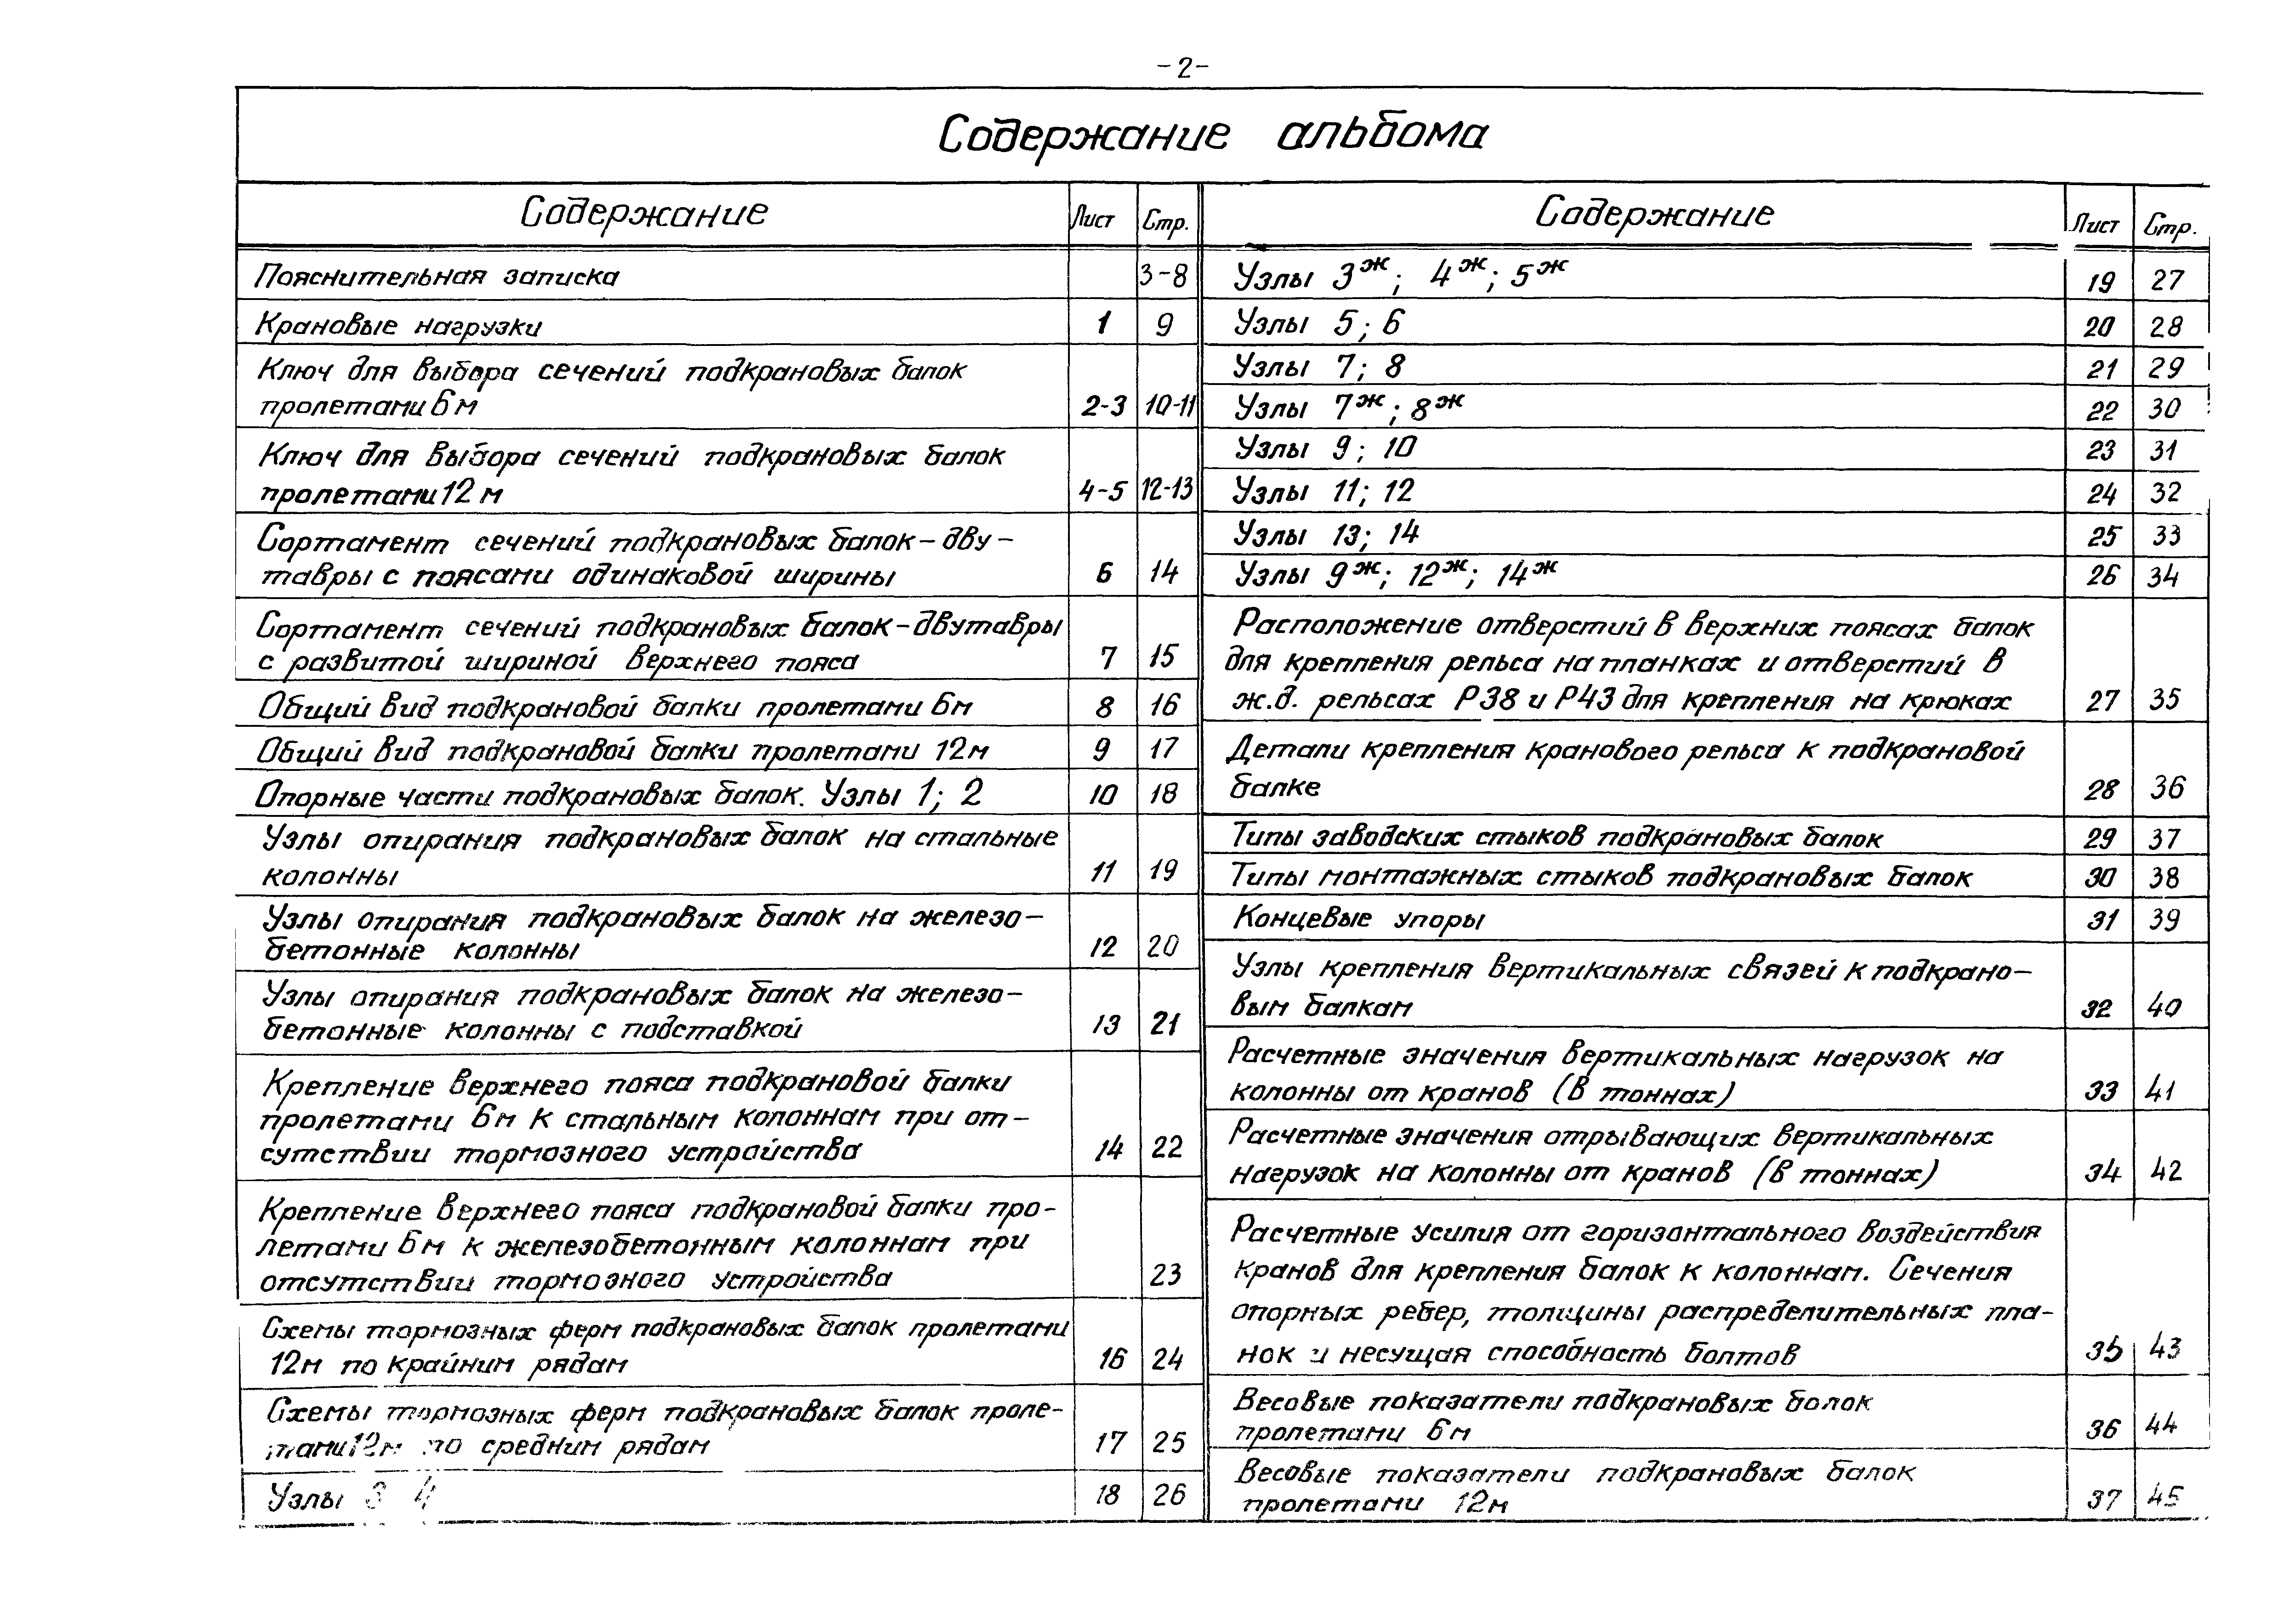 -2-
Содержание альбома
Содержание Лист Стр.
Пояснительная записка 3-8
Крановые нагрузки 1 9
Ключ для выбора сечений подкрановых балок
пролетами 6м 2-3 10-11
Ключ для выбора сечений подкрановых балок
пролетами 12 м 4-5 12-13
Сортамент сечений подкрановых балок-дву-
тавры с поясами одинаковой ширины 6 14
Сортамент сечений подкрановых балок-двутавры
с развитой шириной верхнего пояса 7 15
Общий вид подкрановой балки пролетами 6м 8 16
Общий вид подкрановой балки пролетами 12м 9 17
Опорные части подкрановых балок. Узлы 1; 2 10 18
Узлы опирания подкрановых балок на стальные
колонны 11 19
Узлы опирания подкрановых балок на железо-
бетонные колонны 12 20
Узлы опирания подкрановых балок на железо-
бетонные колонны с подставкой 13 21
Крепление верхнего пояса подкрановой балки
пролетами 6м к стальным колоннам при от-
сутствии тормозного устройства 14 22
Крепление верхнего пояса подкрановой балки про-
летами 6м к железобетонным колоннам при
отсутствии тормозного устройства 23
Схемы тормозных ферм подкрановых балок пролетами
12м по крайним рядам 16 24
Схемы тормозных ферм подкрановых балок проле-
тами 12м по средним рядам 17 25
Узлы 3 4 18 26
Содержание Лист Стр.
Узлы 3ж; 4ж; 5ж 19 27
Узлы 5; 6 20 28
Узлы 7; 8 21 29
Узлы 7ж; 8ж 22 30
Узлы 9; 10 23 31
Узлы 11; 12 24 32
Узлы 13; 14 25 33
Узлы 9ж; 12ж; 14ж 26 34
Расположение отверстий в верхних поясах балок
для крепления рельса на планках и отверстий в
ж.д. рельсах Р38 и Р43 для крепления на крюках 27 35
Детали крепления кранового рельса к подкрановой
балке 28 36
Типы заводских стыков подкрановых балок 29 37
Типы монтажных стыков подкрановых балок 30 38
Концевые упоры 31 39
Узлы крепления вертикальных связей к подкрано-
вым балкам 32 40
Расчетные значения вертикальных нагрузок на
колонны от кранов (в тоннах) 33 41
Расчетные значения отрывающих вертикальных
нагрузок на колонны от кранов (в тоннах) 34 42
Расчетные усилия от горизонтального воздействия
кранов для крепления балок к колоннам. Сечения
опорных ребер, толщины распределительных пла-
нок и несущая способность болтов 35 43
Весовые показатели подкрановых балок
пролетами 6м 36 44
Весовые показатели подкрановых балок
пролетами 12м 37 45